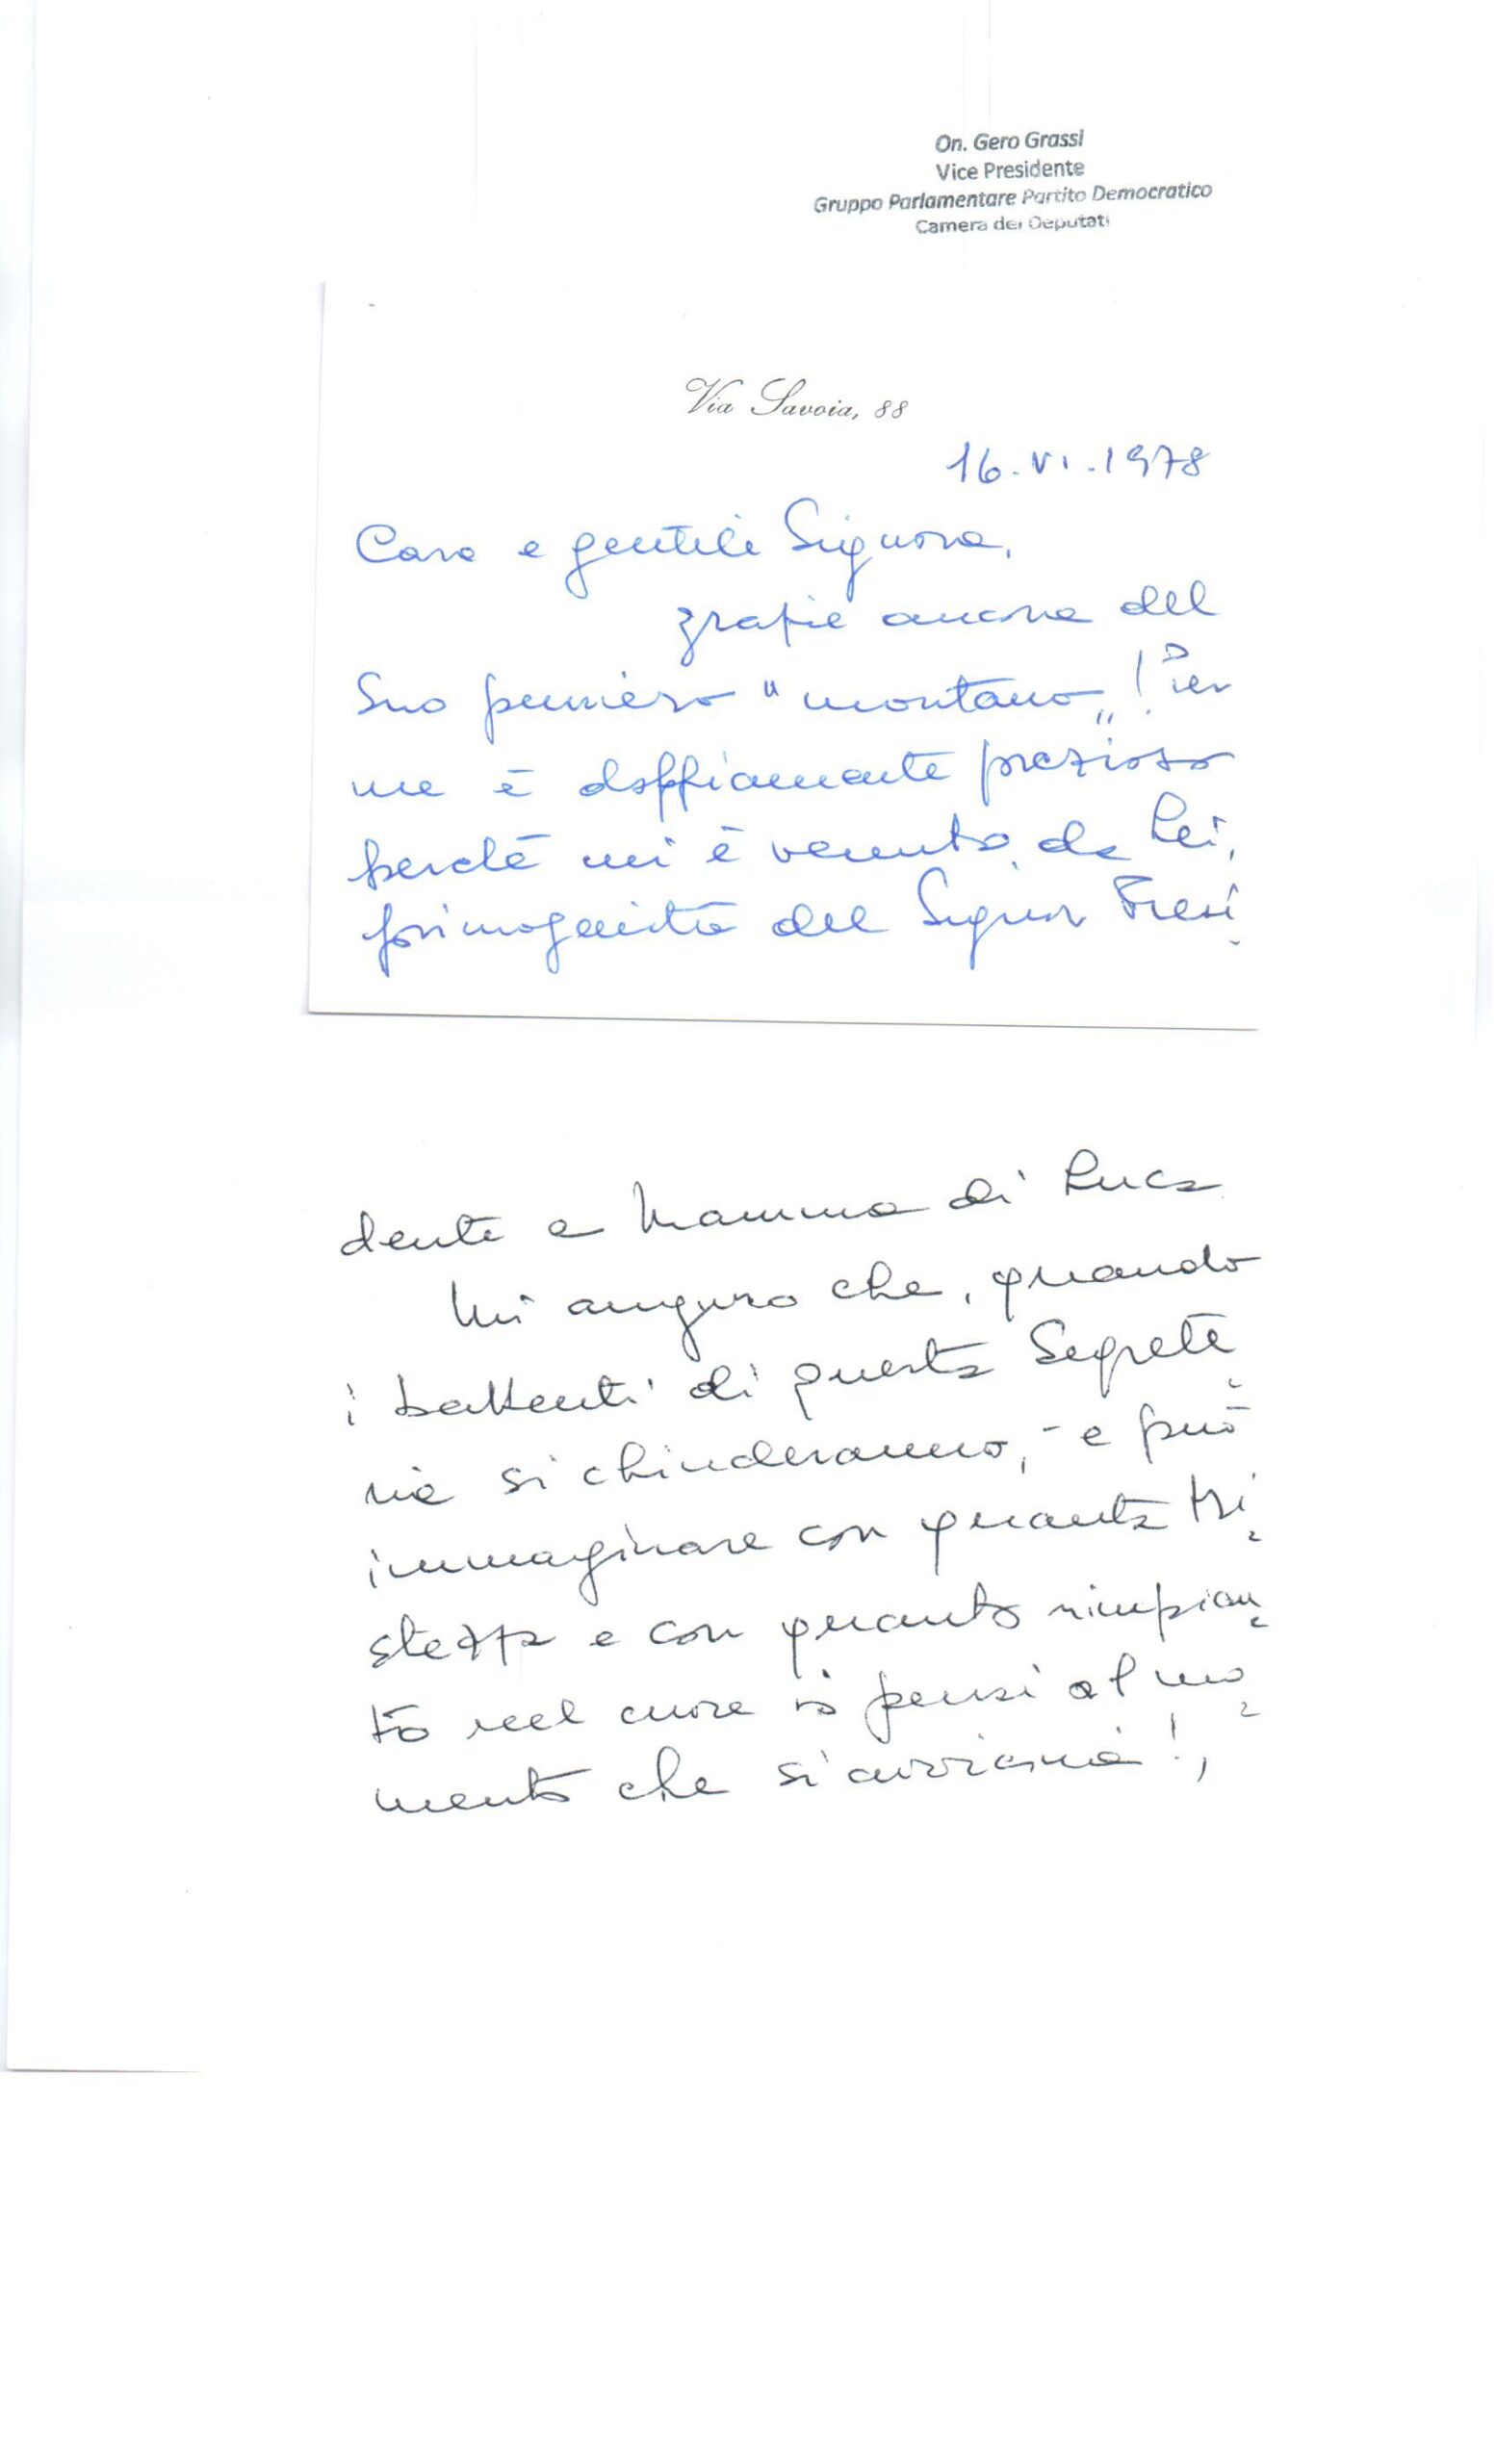 On. Gero Grassi
Vice Presidente
Gruppo Parlamentare Partito Democratico
Camera dei Deputati
Via Savoia, 88
16.VI.1978
Cara e gentile Signora,
grazie ancora del
Suo pensiero "montano"! Per
me è doppiamente prezioso
perché mi è venuto da Lei,
primogenita del Signor Presi
dente e Mamma di Luca
Mi auguro che, quando
i battenti di questa Segrete
ria si chiuderanno, - e può
immaginare con quanta tri
stezza e con quanto rimpian
to nel cuore io pensi al mo
mento che si avvicina!,